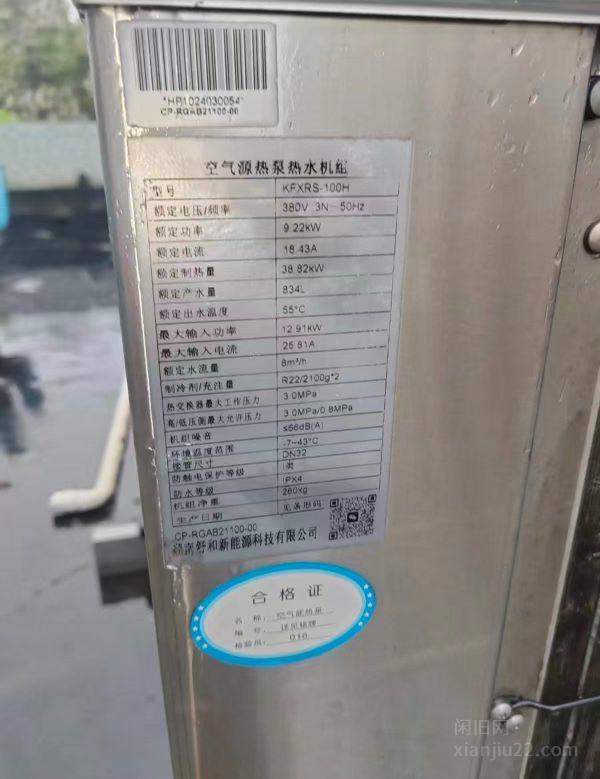 *HP1024030054*
CP-RGAB21100-00
空气源热泵热水机组
型号 KFXRS-100H
额定电压/频率 380V 3N~50Hz
额定功率 9.22kW
额定电流 18.43A
额定制热量 38.82kW
额定产水量 834L
额定出水温度 55°C
最大输入功率 12.91kW
最大输入电流 25.81A
额定水流量 8m³/h
制冷剂/充注量 R22/2100g*2
热交换器最大工作压力 3.0MPa
高/低压侧最大允许压力 3.0MPa/0.8MPa
机组噪音 ≤66dB(A)
环境温度范围 -7~43°C
接管尺寸 DN32
防触电保护等级 I类
防水等级 IPX4
机组净重 280kg
生产日期 见条形码
CP-RGAB21100-00
湖南舒和新能源科技有限公司
合格证
名称: 空气能热泵
编号: 详见铭牌
检验员: 010
闲旧网
xianjiu22.com